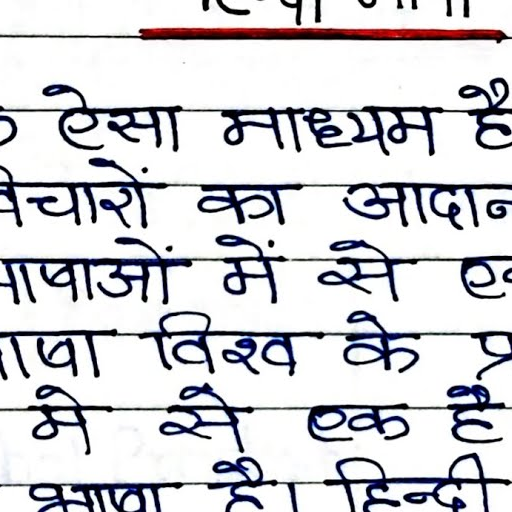 ऐसा माध्यम है
विचारों का आदान
भाषाओं में से एक
भाषा विश्व के
मे से एक है
भाषा है। हिन्दी